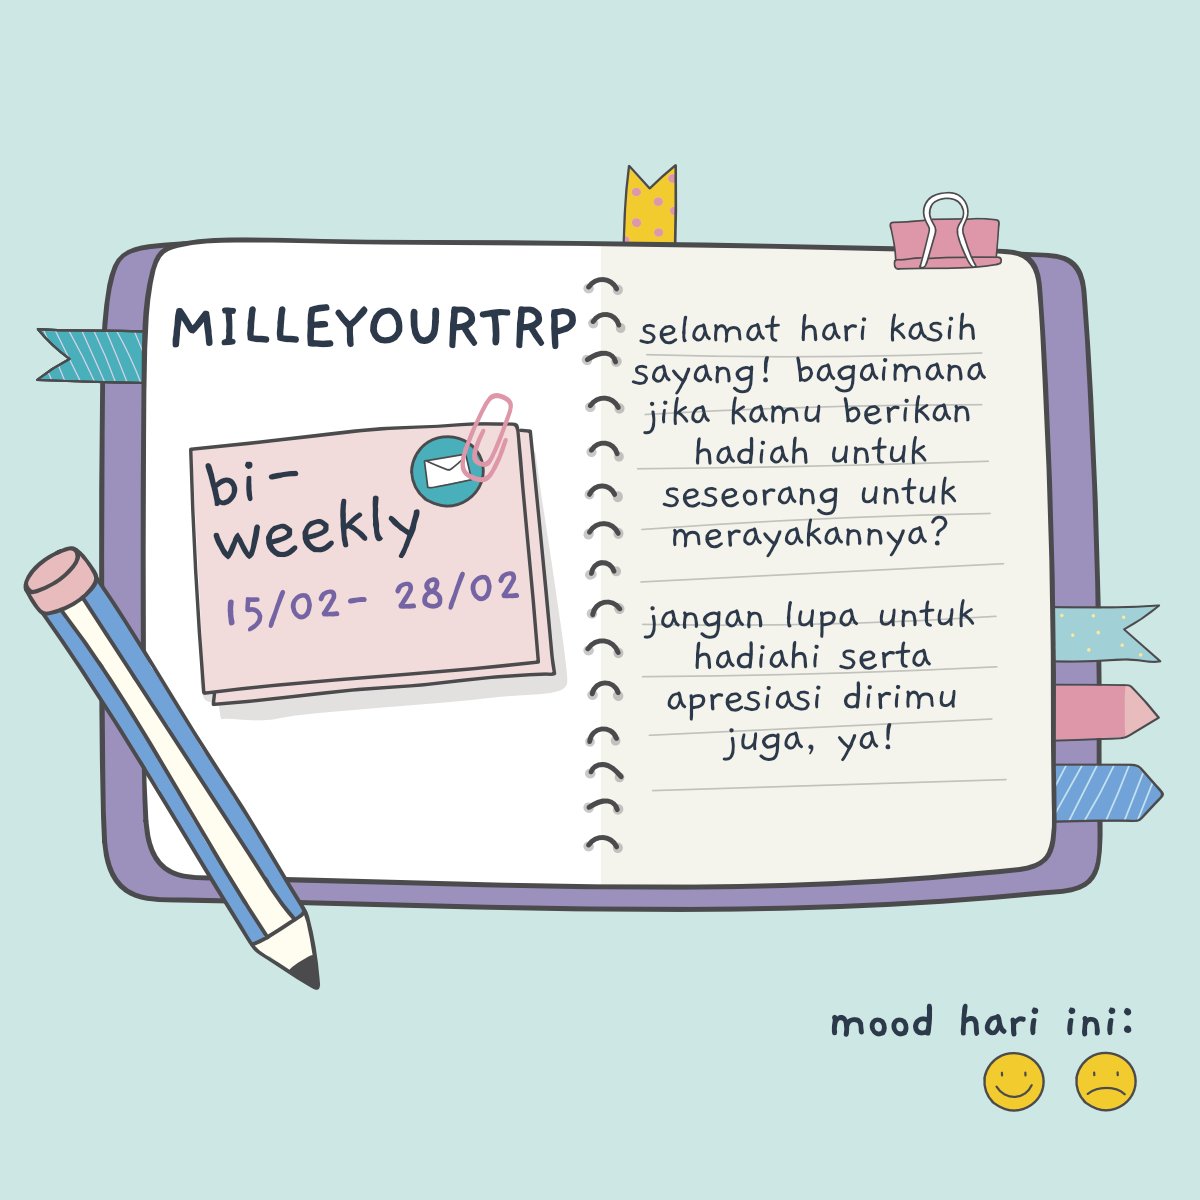 MILLEYOURTRP
bi-
weekly
15/02- 28/02
selamat hari kasih
sayang! bagaimana
jika kamu berikan
hadiah untuk
seseorang untuk
merayakannya?
jangan lupa untuk
hadiahi serta
apresiasi dirimu
juga, ya!
mood hari ini: